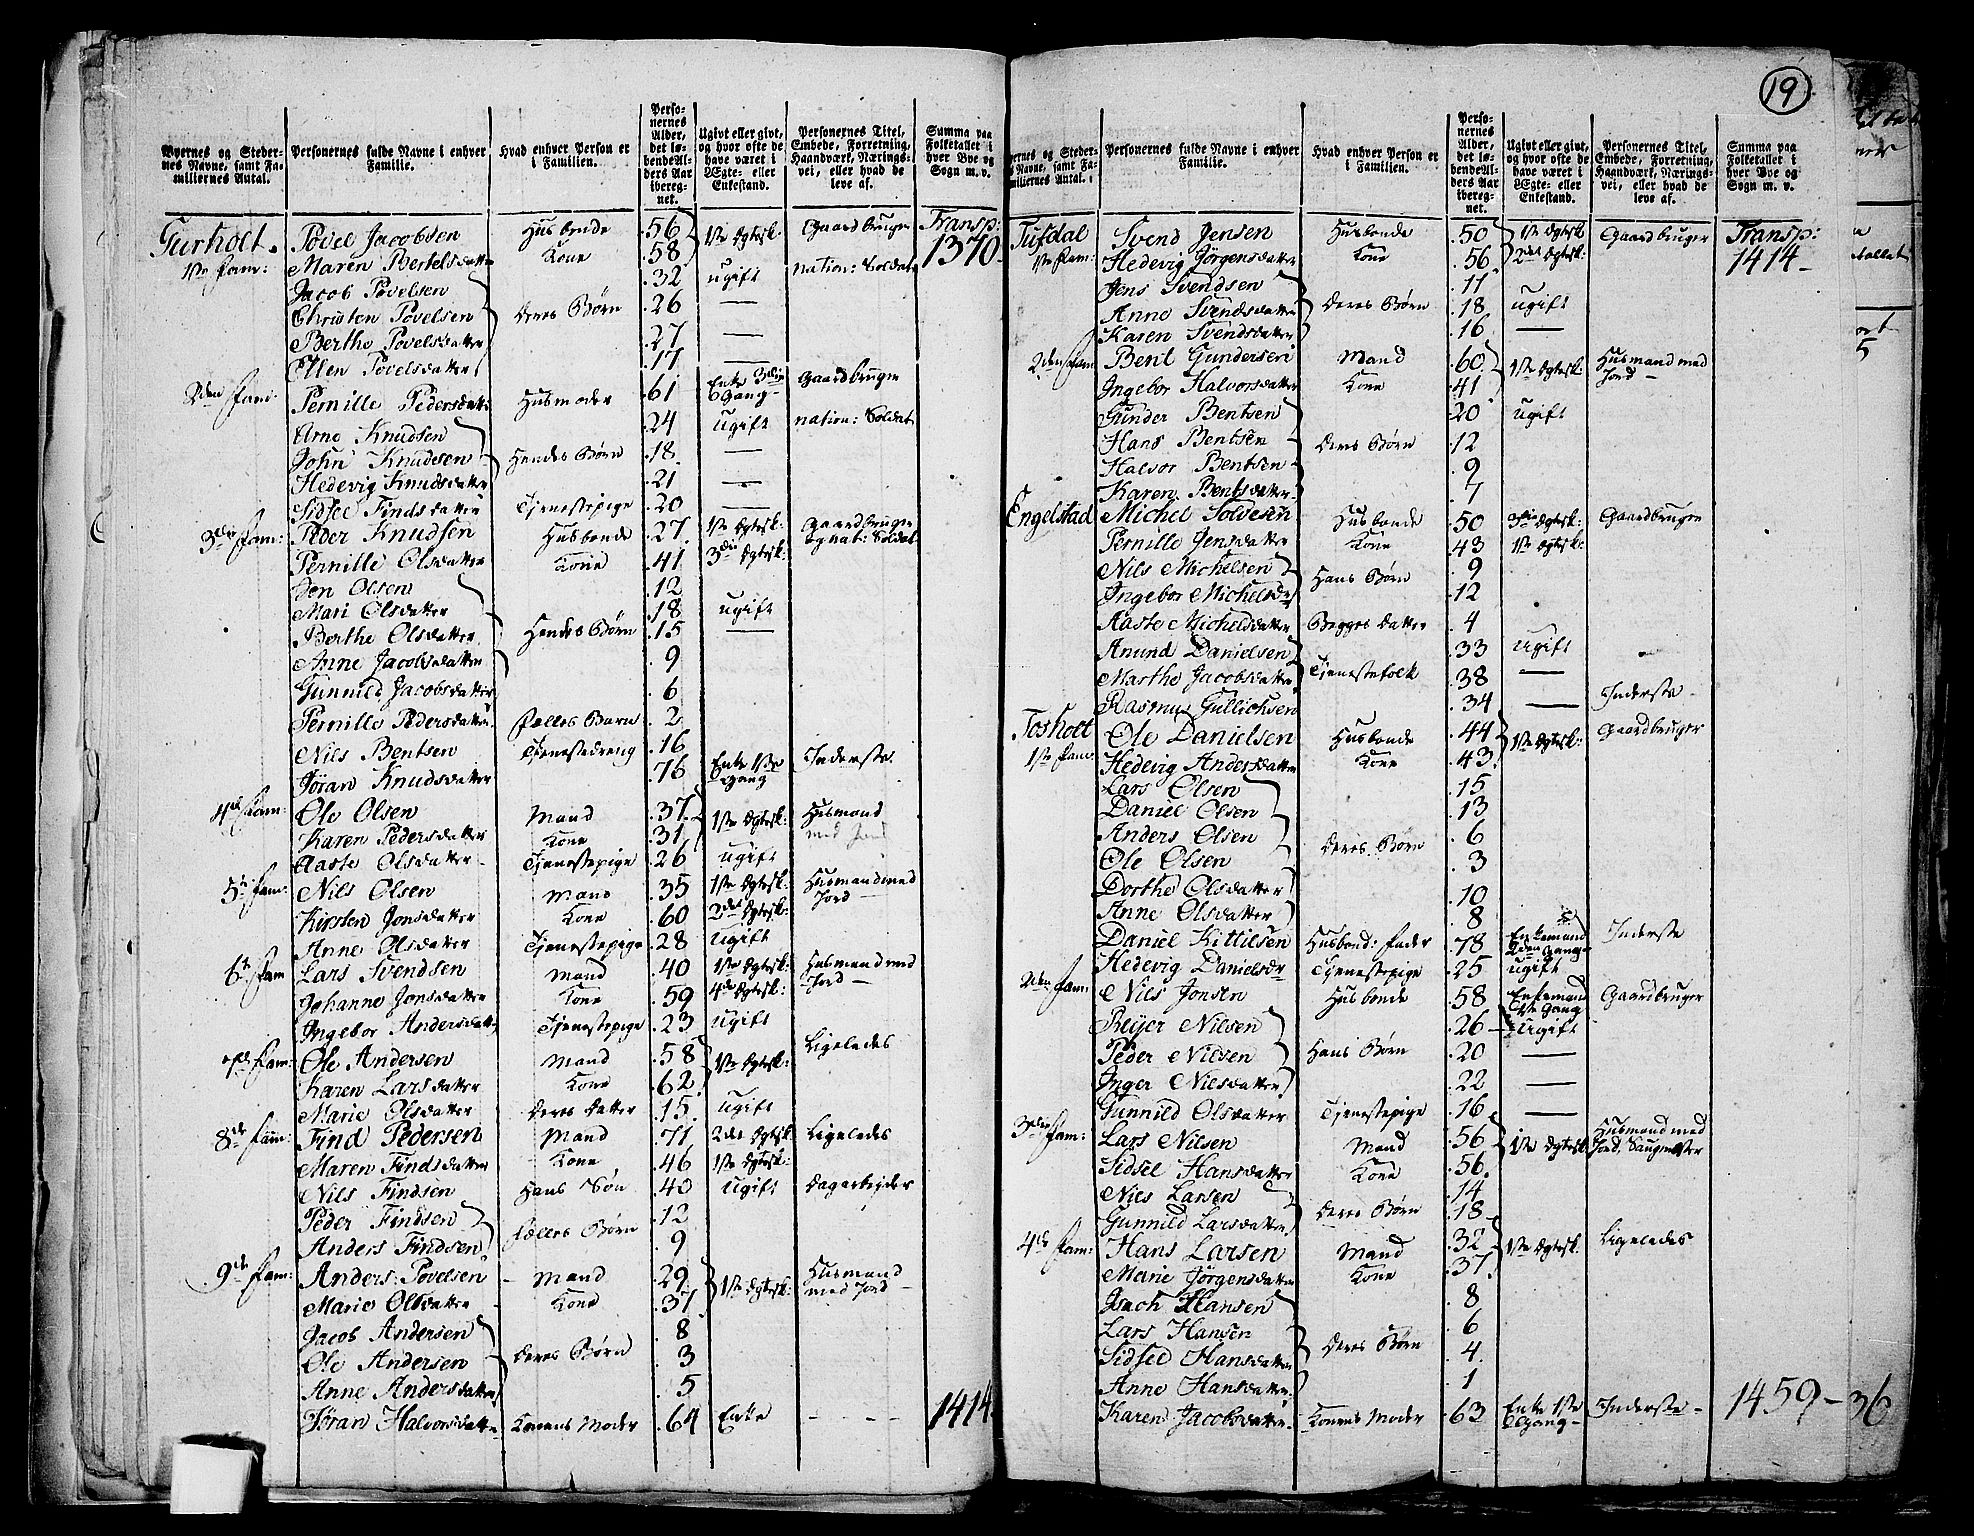 19
Byernes og Stedernes Navne, samt Familiernes Antal. | Personernes fulde Navne i enhver Familie. | Hvad enhver Person er i Familien. | Personernes Alder, det løbende Alders Aar iberegnet. | Ugivt eller givt, og hvor ofte de have været i Ægte- eller Enkestand. | Personernes Titel, Embede, Forretning, Haandværk, Næringsvei, eller hvad de leve af. | Summa paa Folketallet i hver Bye og Sogn m. v.
Gurholt. 1ste Fam: | Povel Jacobsen | Husbonde | 56 | 1ste Ægtesk: | Gaardbruger | Transp: 1370
Maren Bertelsdatter | Kone | 58
Jacob Povelsen | Deres Børn | 32 | ugift | nation: Soldat
Christen Povelsen | 26 | —
Berthe Povelsdatter | 27 | —
Ellen Povelsdatter | 17 | —
2den Fam: | Pernille Pedersdatter | Husmoder | 61 | Enke 3die Gang | Gaardbruger
Arne Knudsen | Hendes Børn | 24 | ugift | nation: Soldat
John Knudsen | 18 | —
Hedevig Knudsdatter | 21 | —
Sidsel Findsdatter | Tjenestepige | 20 | —
3die Fam: | Peder Knudsen | Husbonde | 27 | 1ste Ægtesk: | Gaardbruger og nat: Soldat
Pernille Olsdatter | Kone | 41 | 3die Ægtesk:
Jon Olsen | Hendes Børn | 12
Mari Olsdatter | 18 | ugift
Berthe Olsdatter | 15 | —
Anne Jacobsdatter | 9
Gunnild Jacobsdatter | 6
Pernille Pedersdatter | Fælles Barn | 2
Nils Bentsen | Tjenestedreng | 16
Jøran Knudsdatter | 76 | Enke 1ste Gang | Inderste
4de Fam: | Ole Olsen | Mand | 37 | 1ste Ægtesk: | Husmand med Jord
Karen Pedersdatter | Kone | 31
Aaste Olsdatter | Tjenestepige | 26 | ugift
5te Fam: | Nils Olsen | Mand | 35 | 1ste Ægtesk: | Husmand med Jord —
Kirsten Jonsdatter | Kone | 60 | 2det Ægtesk:
Anne Olsdatter | Tjenestepige | 28 | ugift
6te Fam | Lars Svendsen | Mand | 40 | 1ste Ægtesk: | Husmand med Jord —
Johanne Jonsdatter | Kone | 59 | 4de Ægtesk:
Ingebor Andersdatter | Tjenestepige | 23 | ugift
7de Fam: | Ole Andersen | Mand | 58 | 1ste Ægtesk: | Ligeledes
Karen Larsdatter | Kone | 62
Marie Olsdatter | Deres Datter | 15 | ugift
8de Fam: | Find Pedersen | Mand | 71 | 2det Ægtesk: | Ligeledes
Maren Findsdatter | Kone | 46 | 1ste Ægtesk:
Nils Findsen | Hans Søn | 40 | ugift | Dagarbejder
Peder Findsen | Fælles Børn | 12
Anders Findsen | 9
9de Fam: | Anders Povelsen | Mand | 29 | 1ste Ægtesk: | Husmand med Jord —
Marie Olsdatter | Kone | 37
Jacob Andersen | Deres Børn | 8
Ole Andersen | 3
Anne Andersdatter | 5
Jøran Halvorsdatter | Konens Moder | 64 | Enke | - - - | 1414
Byernes og Stedernes Navne, samt Familiernes Antal. | Personernes fulde Navne i enhver Familie. | Hvad enhver Person er i Familien. | Personernes Alder, det løbende Alders Aar iberegnet. | Ugivt eller givt, og hvor ofte de have været i Ægte- eller Enkestand. | Personernes Titel, Embede, Forretning, Haandværk, Næringsvei, eller hvad de leve af. | Summa paa Folketallet i hver Bye og Sogn m. v.
Tufdal 1ste Fam: | Svend Jensen | Husbonde | 50 | 1ste Ægtesk: | Gaardbruger | Transp: 1414
Hedevig Jørgensdatter | Kone | 56 | 2det Ægtesk:
Jens Svendsen | Deres Børn | 11
Anne Svendsdatter | 18 | ugift
Karen Svendsdatter | 16 | —
2den Fam | Bent Gundersen | Mand | 60 | 1ste Ægtesk: | Husmand med Jord —
Ingebor Halvorsdatter | Kone | 41
Gunder Bentsen | Deres Børn | 20 | ugift
Hans Bentsen | 12
Halvor Bentsen | 9
Karen Bentsdatter | 7
Engelstad | Michel Solvesen | Husbonde | 50 | 3die Ægtesk: | Gaardbruger
Pernille Jensdatter | Kone | 43 | 1ste Ægtesk:
Nils Michelsen | Hans Børn | 9
Ingebor Michelsdr | 12
Aaste Michelsdatter | Begges Datter | 4
Anund Danielsen | Tjenestefolk | 33 | ugift
Marthe Jacobsdatter | 38 | —
Rasmus Gullichsen | 34 | — | Inderste
Tosholt 1ste Fam: | Ole Danielsen | Husbonde | 44 | 1ste Ægtesk: | Gaardbruger
Hedevig Andersdatter | Kone | 43
Lars Olsen | Deres Børn | 15
Daniel Olsen | 13
Anders Olsen | 6
Ole Olsen | 3
Dorthe Olsdatter | 10
Anne Olsdatter | 8
Daniel Kittilsen | Husbond: Fader | 78 | Enkemand 2den Gang | Inderste
Hedevig Danielsdr | Tjenestepige | 25 | ugift
2den Fam: | Nils Jonsen | Husbonde | 58 | Enkemand 1ste Gang | Gaardbruger
Reijer Nilsen | Hans Børn | 26 | ugift
Peder Nilsen | 20 | —
Inger Nilsdatter | 22 | —
Gunnild Olsdatter | Tjenestepige | 16 | —
3die Fam: | Lars Nilsen | Mand | 56 | 1ste Ægtesk: | Husmand med Jord, Saugmester
Sidsel Hansdatter | Kone | 56
Nils Larsen | Deres Børn | 14
Gunnild Larsdatter | 18
4de Fam: | Hans Larsen | Mand | 32 | 1ste Ægtesk: | Ligeledes
Marie Jørgensdatter | Kone | 37
Isach Hansen | Deres Børn | 8
Lars Hansen | 6
Sidsel Hansdatter | 4
Anne Hansdatter | 1
Karen Jacobsdatter | Konens Moder | 63 | Enke 1ste Gang — | Inderste | 1459
36